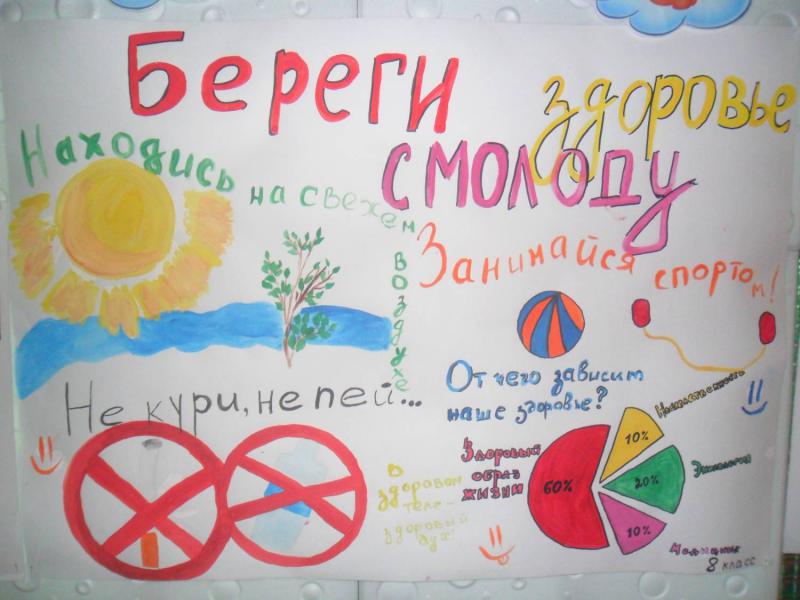 Береги
здоровье
смолоду
Находись на свежем воздухе
Занимайся спортом!
Не кури, не пей...
От чего зависит
наше здоровье?
Здоровый
образ
жизни
60%
10%
Наследственность
20%
Экология
10%
Медицина
В
здоровом
теле-
здоровый
дух!
8 класс